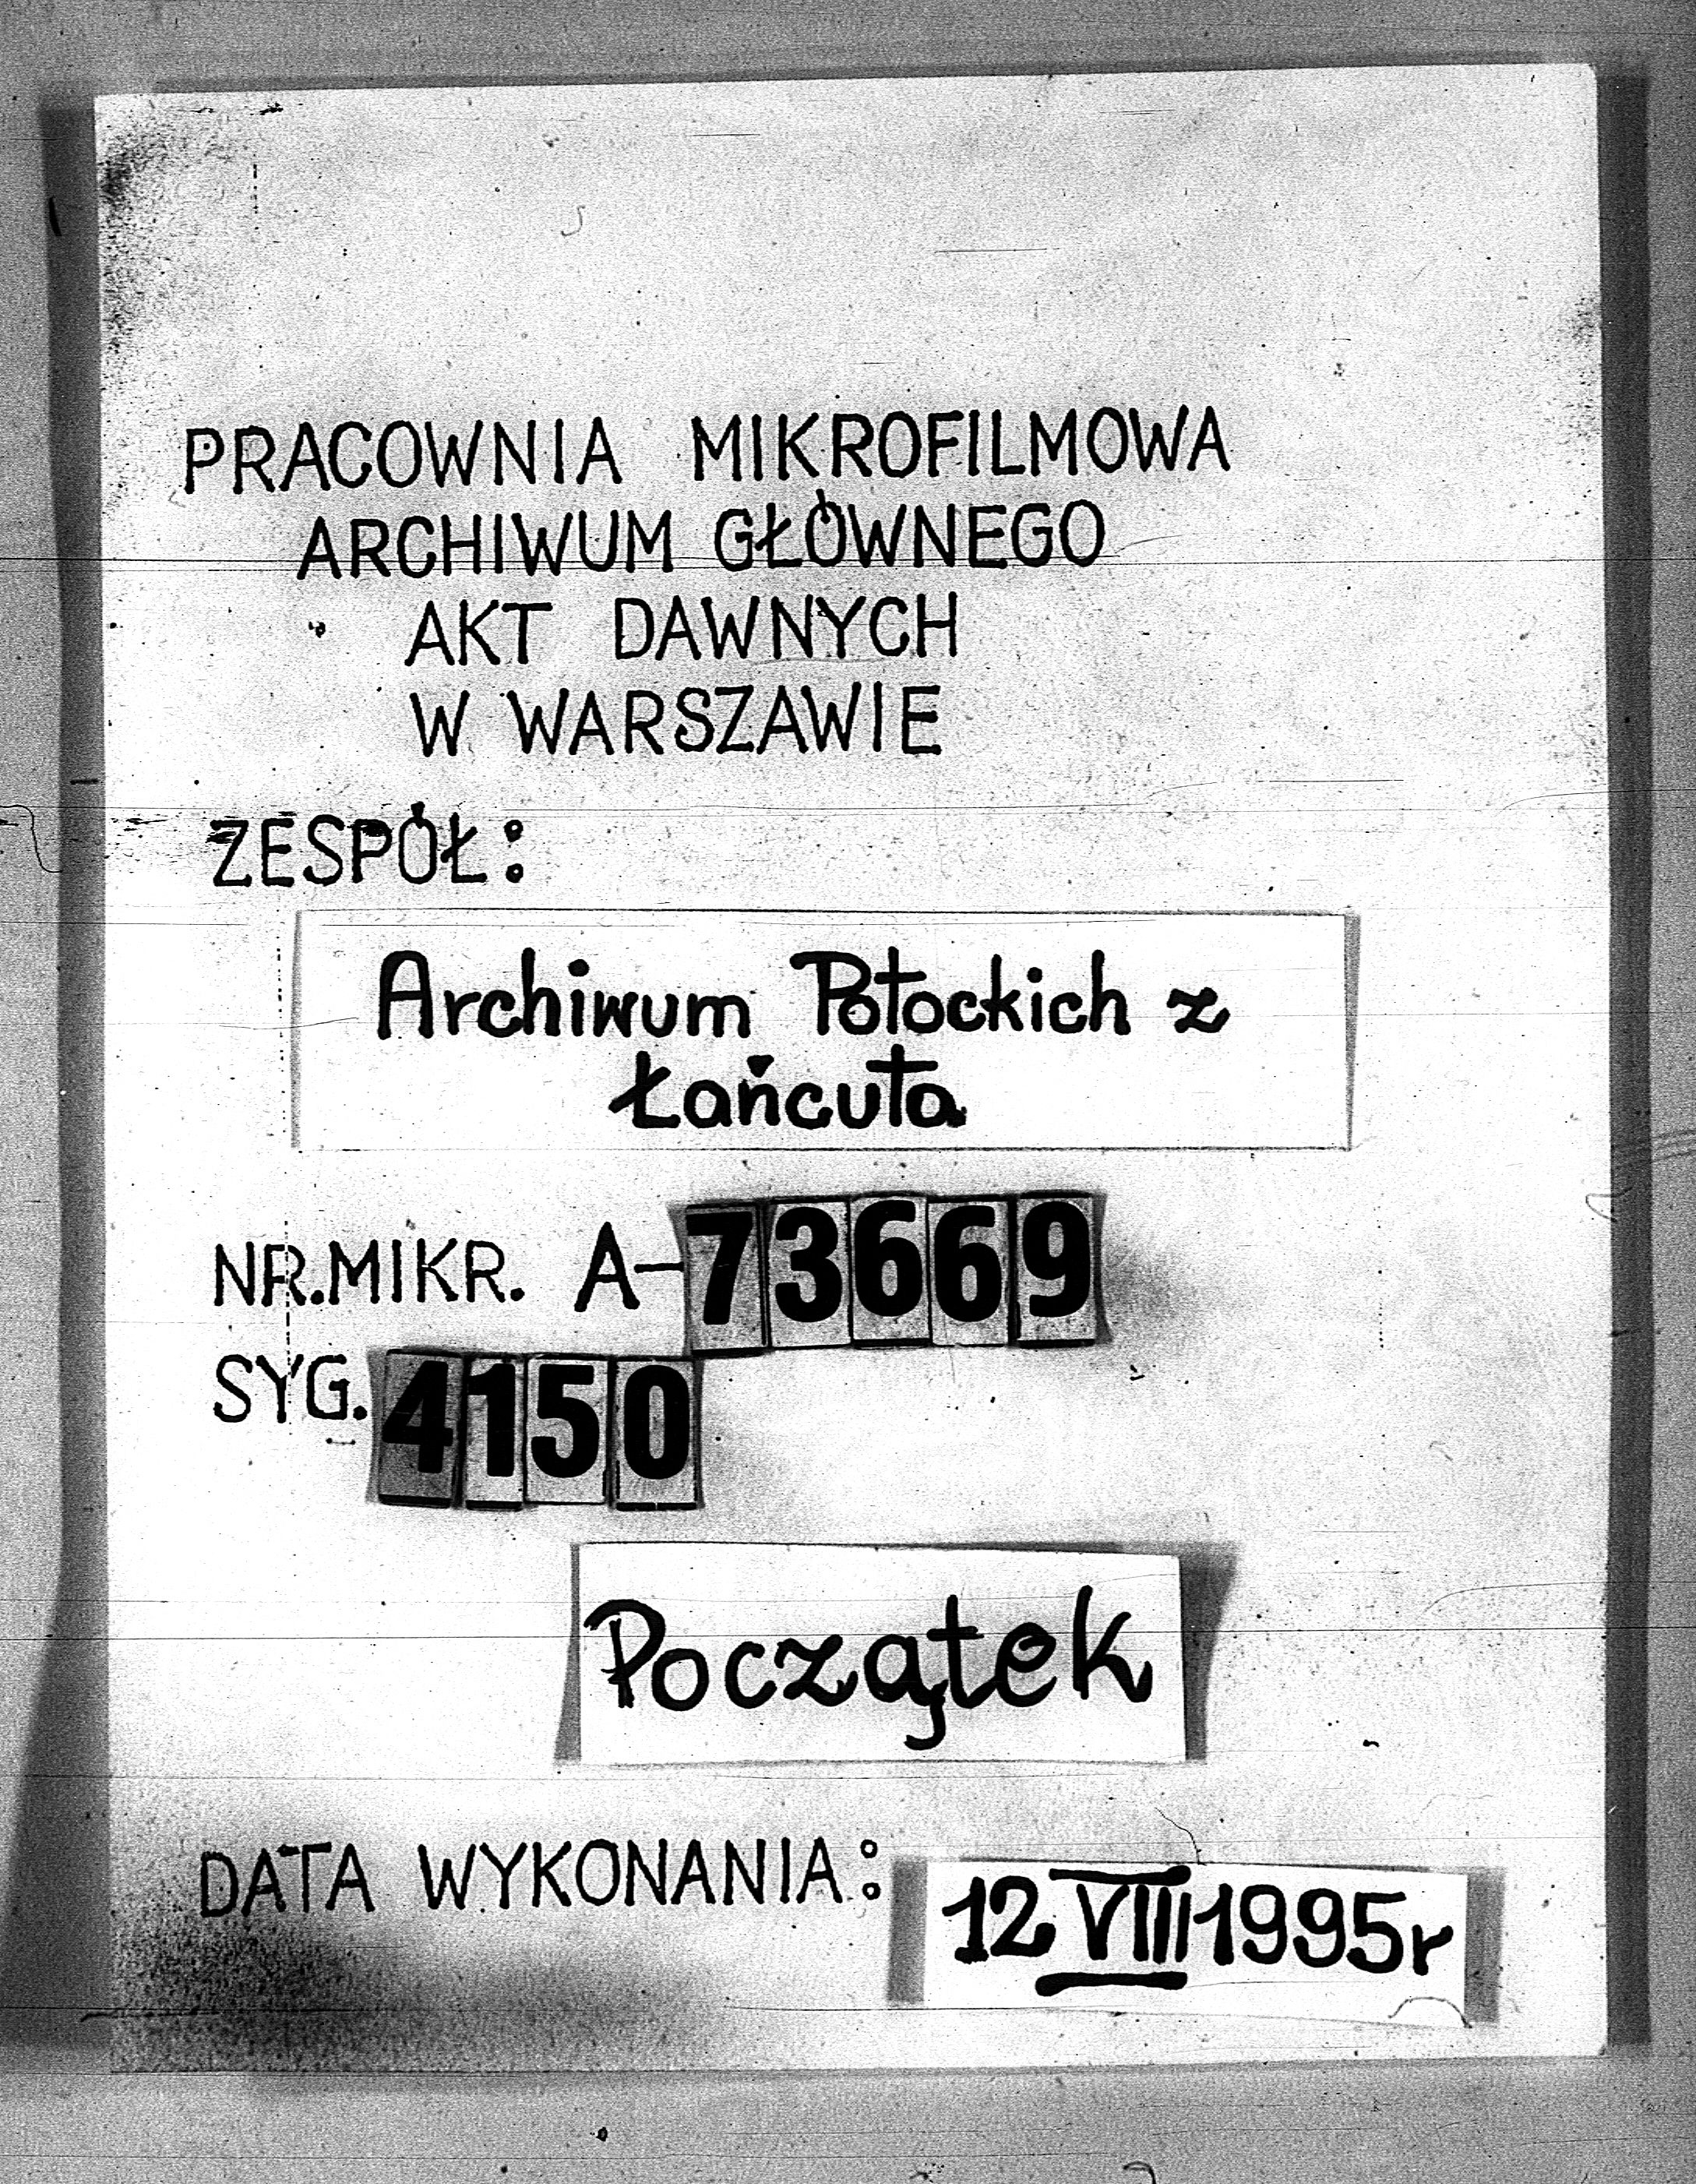 PRACOWNIA MIKROFILMOWA
ARCHIWUM GŁÓWNEGO
AKT DAWNYCH
W WARSZAWIE
ZESPÓŁ:
Archiwum Potockich z
Łańcuta
NR.MIKR. A-73669
SYG. 4150
Początek
DATA WYKONANIA: 12 VIII 1995r